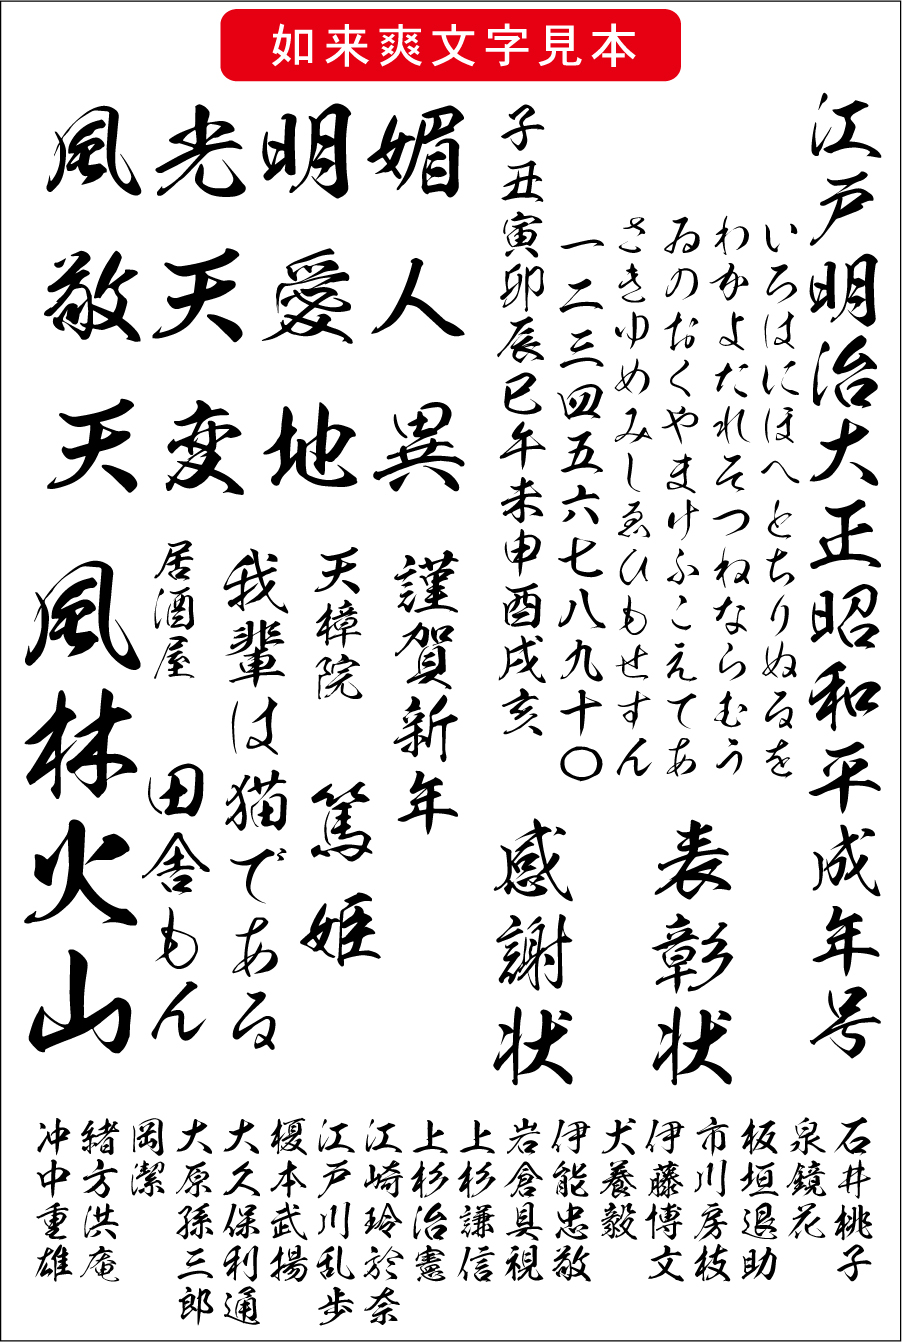 如来爽文字見本
江戸明治大正昭和平成年号
いろはにほへとちりぬるを
わかよたれそつねならむう
ゐのおくやまけふこえてあ
さきゆめみしゑひもせすん
一二三四五六七八九十〇
子丑寅卯辰巳午未申酉戌亥
表彰状
感謝状
風光明媚
敬天愛人
天変地異
謹賀新年
天樟院 篤姫
我輩は猫である
居酒屋 田舎もん
風林火山
石井桃子
泉鏡花
板垣退助
市川房枝
伊藤博文
犬養毅
伊能忠敬
岩倉具視
上杉謙信
上杉治憲
江崎玲於奈
江戸川乱歩
榎本武揚
大久保利通
大原孫三郎
岡潔
緒方洪庵
冲中重雄